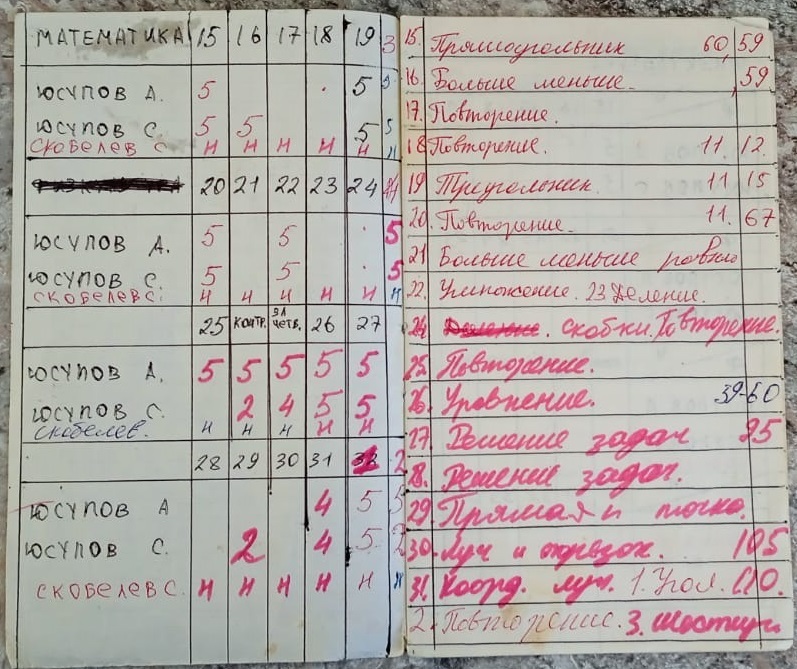 МАТЕМАТИКА 15 16 17 18 19 3
ЮСУПОВ А. 5 5 5
ЮСУПОВ С. 5 5 5 5
СКОБЕЛЕВ С. н н н н н н
20 21 22 23 24
ЮСУПОВ А. 5 5 5
ЮСУПОВ С. 5 5 5
СКОБЕЛЕВ С. н н н н н н
25 КОНТР. ЗА ЧЕТВ. 26 27
ЮСУПОВ А. 5 5 5 5 5
ЮСУПОВ С. 2 4 5 5
СКОБЕЛЕВ. н н н н н
28 29 30 31 2
ЮСУПОВ А 4 5 5
ЮСУПОВ С. 2 4 5 2
СКОБЕЛЕВ С. н н н н н н
15. Прямоугольник 60, 59
16. Больше меньше. , 59
17. Повторение.
18 Повторение. 11. 12
19 Треугольник. 11 15
20. Повторение. 11. 67
21 Больше меньше равно
22. Умножение. 23 Деление.
24 скобки. Повторение.
25. Повторение.
26. Уравнение. 39-60
27. Решение задач 95
28. Решение задач.
29 Прямая и точка.
30. Луч и отрезок. 105
31. Коорд. луч. 1. Угол. 110.
2. Повторение. 3.